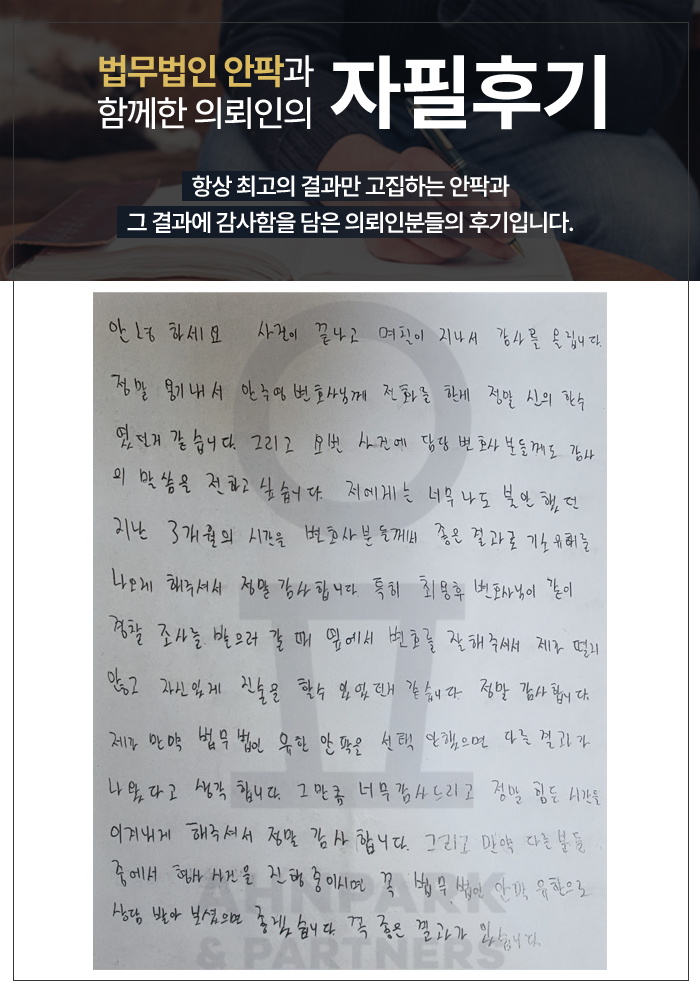 법무법인 안팍과
함께한 의뢰인의
자필후기
항상 최고의 결과만 고집하는 안팍과
그 결과에 감사함을 담은 의뢰인분들의 후기입니다.
안녕하세요 사건이 끝나고 며칠이 지나서 감사를 올립니다.
정말 용기내서 안주영 변호사님께 전화를 한게 정말 신의 한수
였던거 같습니다. 그리고 요번 사건에 담당 변호사분들께도 감사
의 말씀을 전하고 싶습니다. 저에게는 너무나도 불안했던
지난 3개월의 시간을 변호사분들께서 좋은 결과로 기소유예를
나오게 해주셔서 정말 감사합니다. 특히 최용후 변호사님이 같이
경찰 조사를 받으러 갈 때 옆에서 변호를 잘해주셔서 제가 떨지
않고 자신있게 진술을 할수 있었던거 같습니다. 정말 감사합니다.
제가 만약 법무법인 유한 안팍을 선택 안했으면 다른 결과가
나왔다고 생각합니다. 그만큼 너무 감사드리고 정말 힘든 시간을
이겨내게 해주셔서 정말 감사합니다. 그리고 만약 다른분들
중에서 형사 사건을 진행중이시면 꼭 법무법인 안팍 유한으로
상담 받아 보셨으면 좋겠습니다. 꼭 좋은 결과가 있습니다.
AHNPARK
& PARTNERS